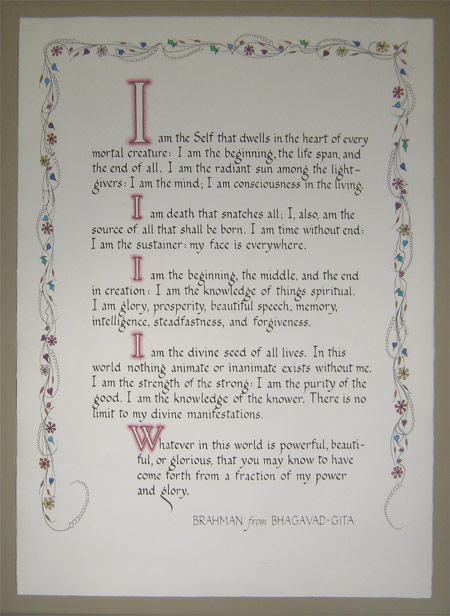 I am the Self that dwells in the heart of every
mortal creature: I am the beginning, the life span, and
the end of all. I am the radiant sun among the light-
givers: I am the mind; I am consciousness in the living.
I am death that snatches all; I, also, am the
source of all that shall be born. I am time without end:
I am the sustainer: my face is everywhere.
I am the beginning, the middle, and the end
in creation: I am the knowledge of things spiritual.
I am glory, prosperity, beautiful speech, memory,
intelligence, steadfastness, and forgiveness.
I am the divine seed of all lives. In this
world nothing animate or inanimate exists without me.
I am the strength of the strong: I am the purity of the
good. I am the knowledge of the knower. There is no
limit to my divine manifestations.
Whatever in this world is powerful, beauti-
ful, or glorious, that you may know to have
come forth from a fraction of my power
and glory.
BRAHMAN from BHAGAVAD-GITA